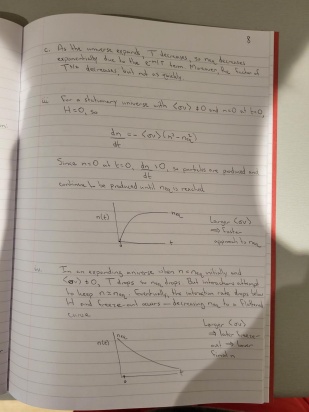 8
c. As the universe expands, T decreases, so n_eq decreases
exponentially due to the e^-m/T term. Moreover the factor of
decreases, but not as
For a stationary universe with ⟨σv⟩ ≠ 0 and n=0 at t=0,
H=0, so
dn/dt = -⟨σv⟩(n²-n_eq²)
Since n=0 at t=0, dn/dt >0, so particles are produced and
continue to be produced until n_eq is reached.
n(t)
n_eq
t
Larger ⟨σv⟩
⇒ faster
approach to n_eq
In an expanding universe when n=n_eq initially and
⟨σv⟩ ≠ 0, T drops so n_eq drops. But interactions attempt
to keep n=n_eq. Eventually, the interaction rate drops below
H and freeze out occurs a decreasing n_eq to a flattened
curve
n(t)
n_eq
t
Larger ⟨σv⟩
⇒ later freeze
out ⇒ lower
final n